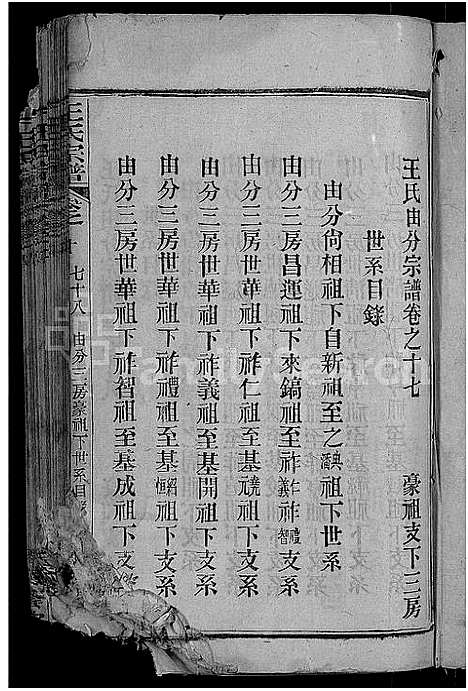 王氏由分宗譜卷之十七　豪祖支下三房
世系目錄
由分尙相祖下自新祖至之典祖下世系
由分三房昌運祖下來鎬祖至祚仁義祚禮智支系
由分三房世華祖下祚仁祖至基堯光祖下支系
由分三房世華祖下祚義祖至基開祖下支系
由分三房世華祖下祚禮祖至基紹恒祖下支系
由分三房世華祖下祚智祖至基成祖下支
王氏宗譜
七十八　由分三房豪祖下世系目